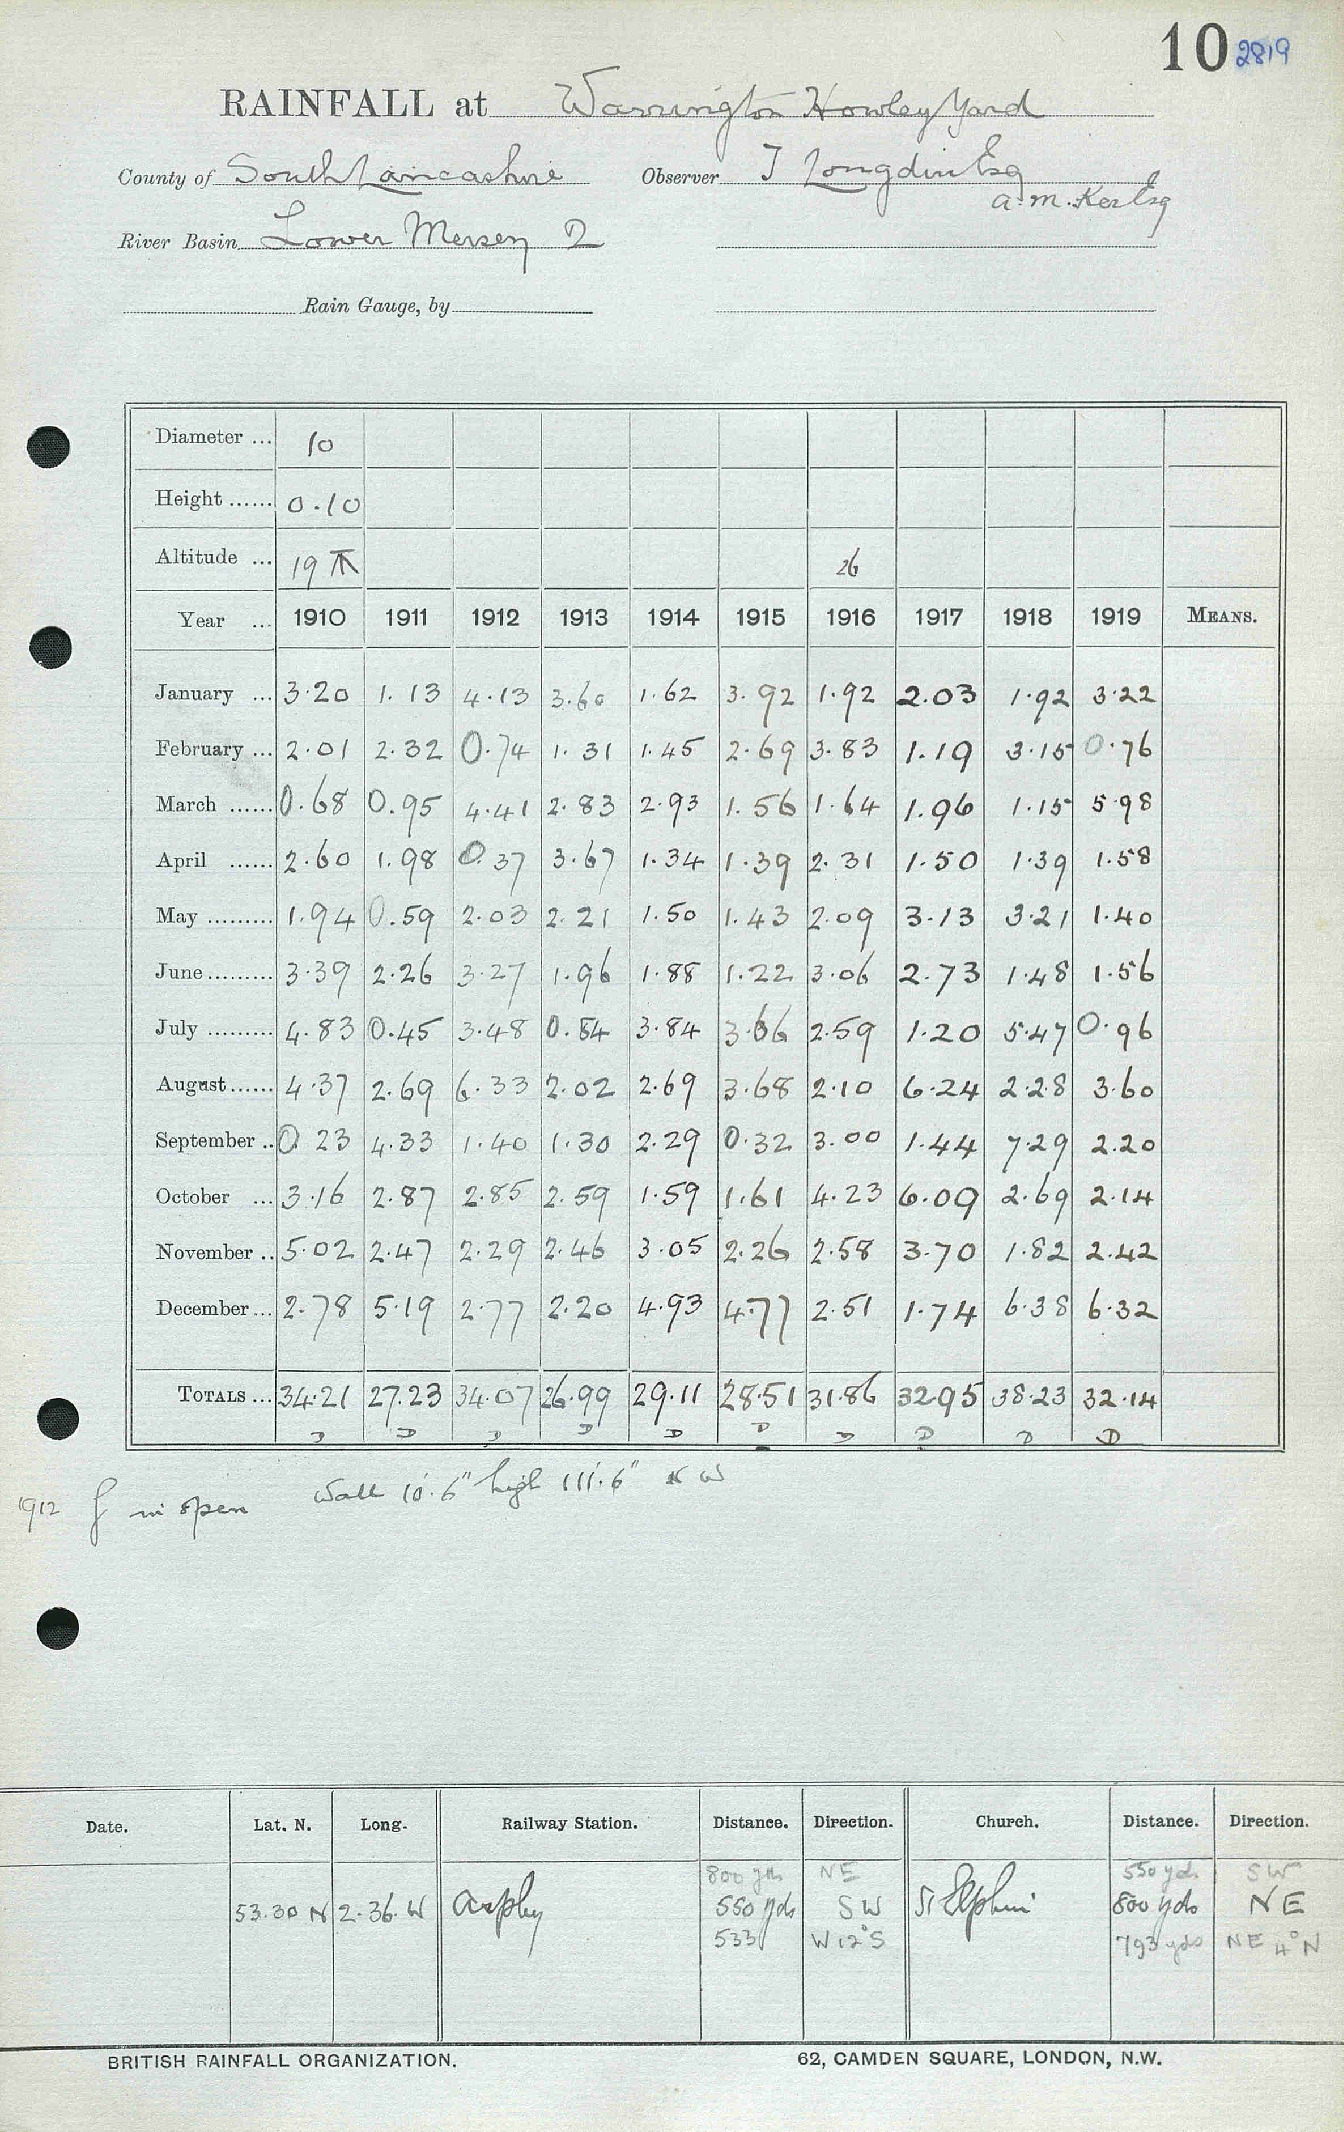 10 2819
RAINFALL at Warrington Howley Yard
County of South Lancashire Observer T Longdin Esq
a. m. Ker Esq
River Basin Lower Mersey 2
Rain Gauge, by
Diameter ... 10
Height ...... 0.10
Altitude ... 19 26
Year ... 1910 1911 1912 1913 1914 1915 1916 1917 1918 1919 MEANS.
January ... 3.20 1.13 4.13 3.60 1.62 3.92 1.92 2.03 1.92 3.22
February ... 2.01 2.32 0.74 1.31 1.45 2.69 3.83 1.19 3.15 0.76
March ...... 0.68 0.95 4.41 2.83 2.93 1.56 1.64 1.96 1.15 5.98
April ...... 2.60 1.98 0.37 3.67 1.34 1.39 2.31 1.50 1.39 1.58
May ......... 1.94 0.59 2.03 2.21 1.50 1.43 2.09 3.13 3.21 1.40
June ......... 3.39 2.26 3.27 1.96 1.88 1.22 3.06 2.73 1.48 1.56
July ......... 4.83 0.45 3.48 0.84 3.84 3.66 2.59 1.20 5.47 0.96
August ...... 4.37 2.69 6.33 2.02 2.69 3.68 2.10 6.24 2.28 3.60
September .. 0.23 4.33 1.40 1.30 2.29 0.32 3.00 1.44 7.29 2.20
October ... 3.16 2.87 2.85 2.59 1.59 1.61 4.23 6.09 2.69 2.14
November .. 5.02 2.47 2.29 2.46 3.05 2.26 2.58 3.70 1.82 2.42
December ... 2.78 5.19 2.77 2.20 4.93 4.77 2.51 1.74 6.38 6.32
TOTALS ... 34.21 27.23 34.07 26.99 29.11 28.51 31.86 32.95 38.23 32.14
D D D D D D D D D D
1912 g in open Wall 10'.6" high 111'.6" NW
Date. Lat. N. Long. Railway Station. Distance. Direction. Church. Distance. Direction.
800 yds NE 550 yds SW
53.30 N 2.36.W Arpley 550 yds SW St Elphin 800 yds NE
533 W12°S 793 yds NE 4°N
BRITISH RAINFALL ORGANIZATION. 62, CAMDEN SQUARE, LONDON, N.W.